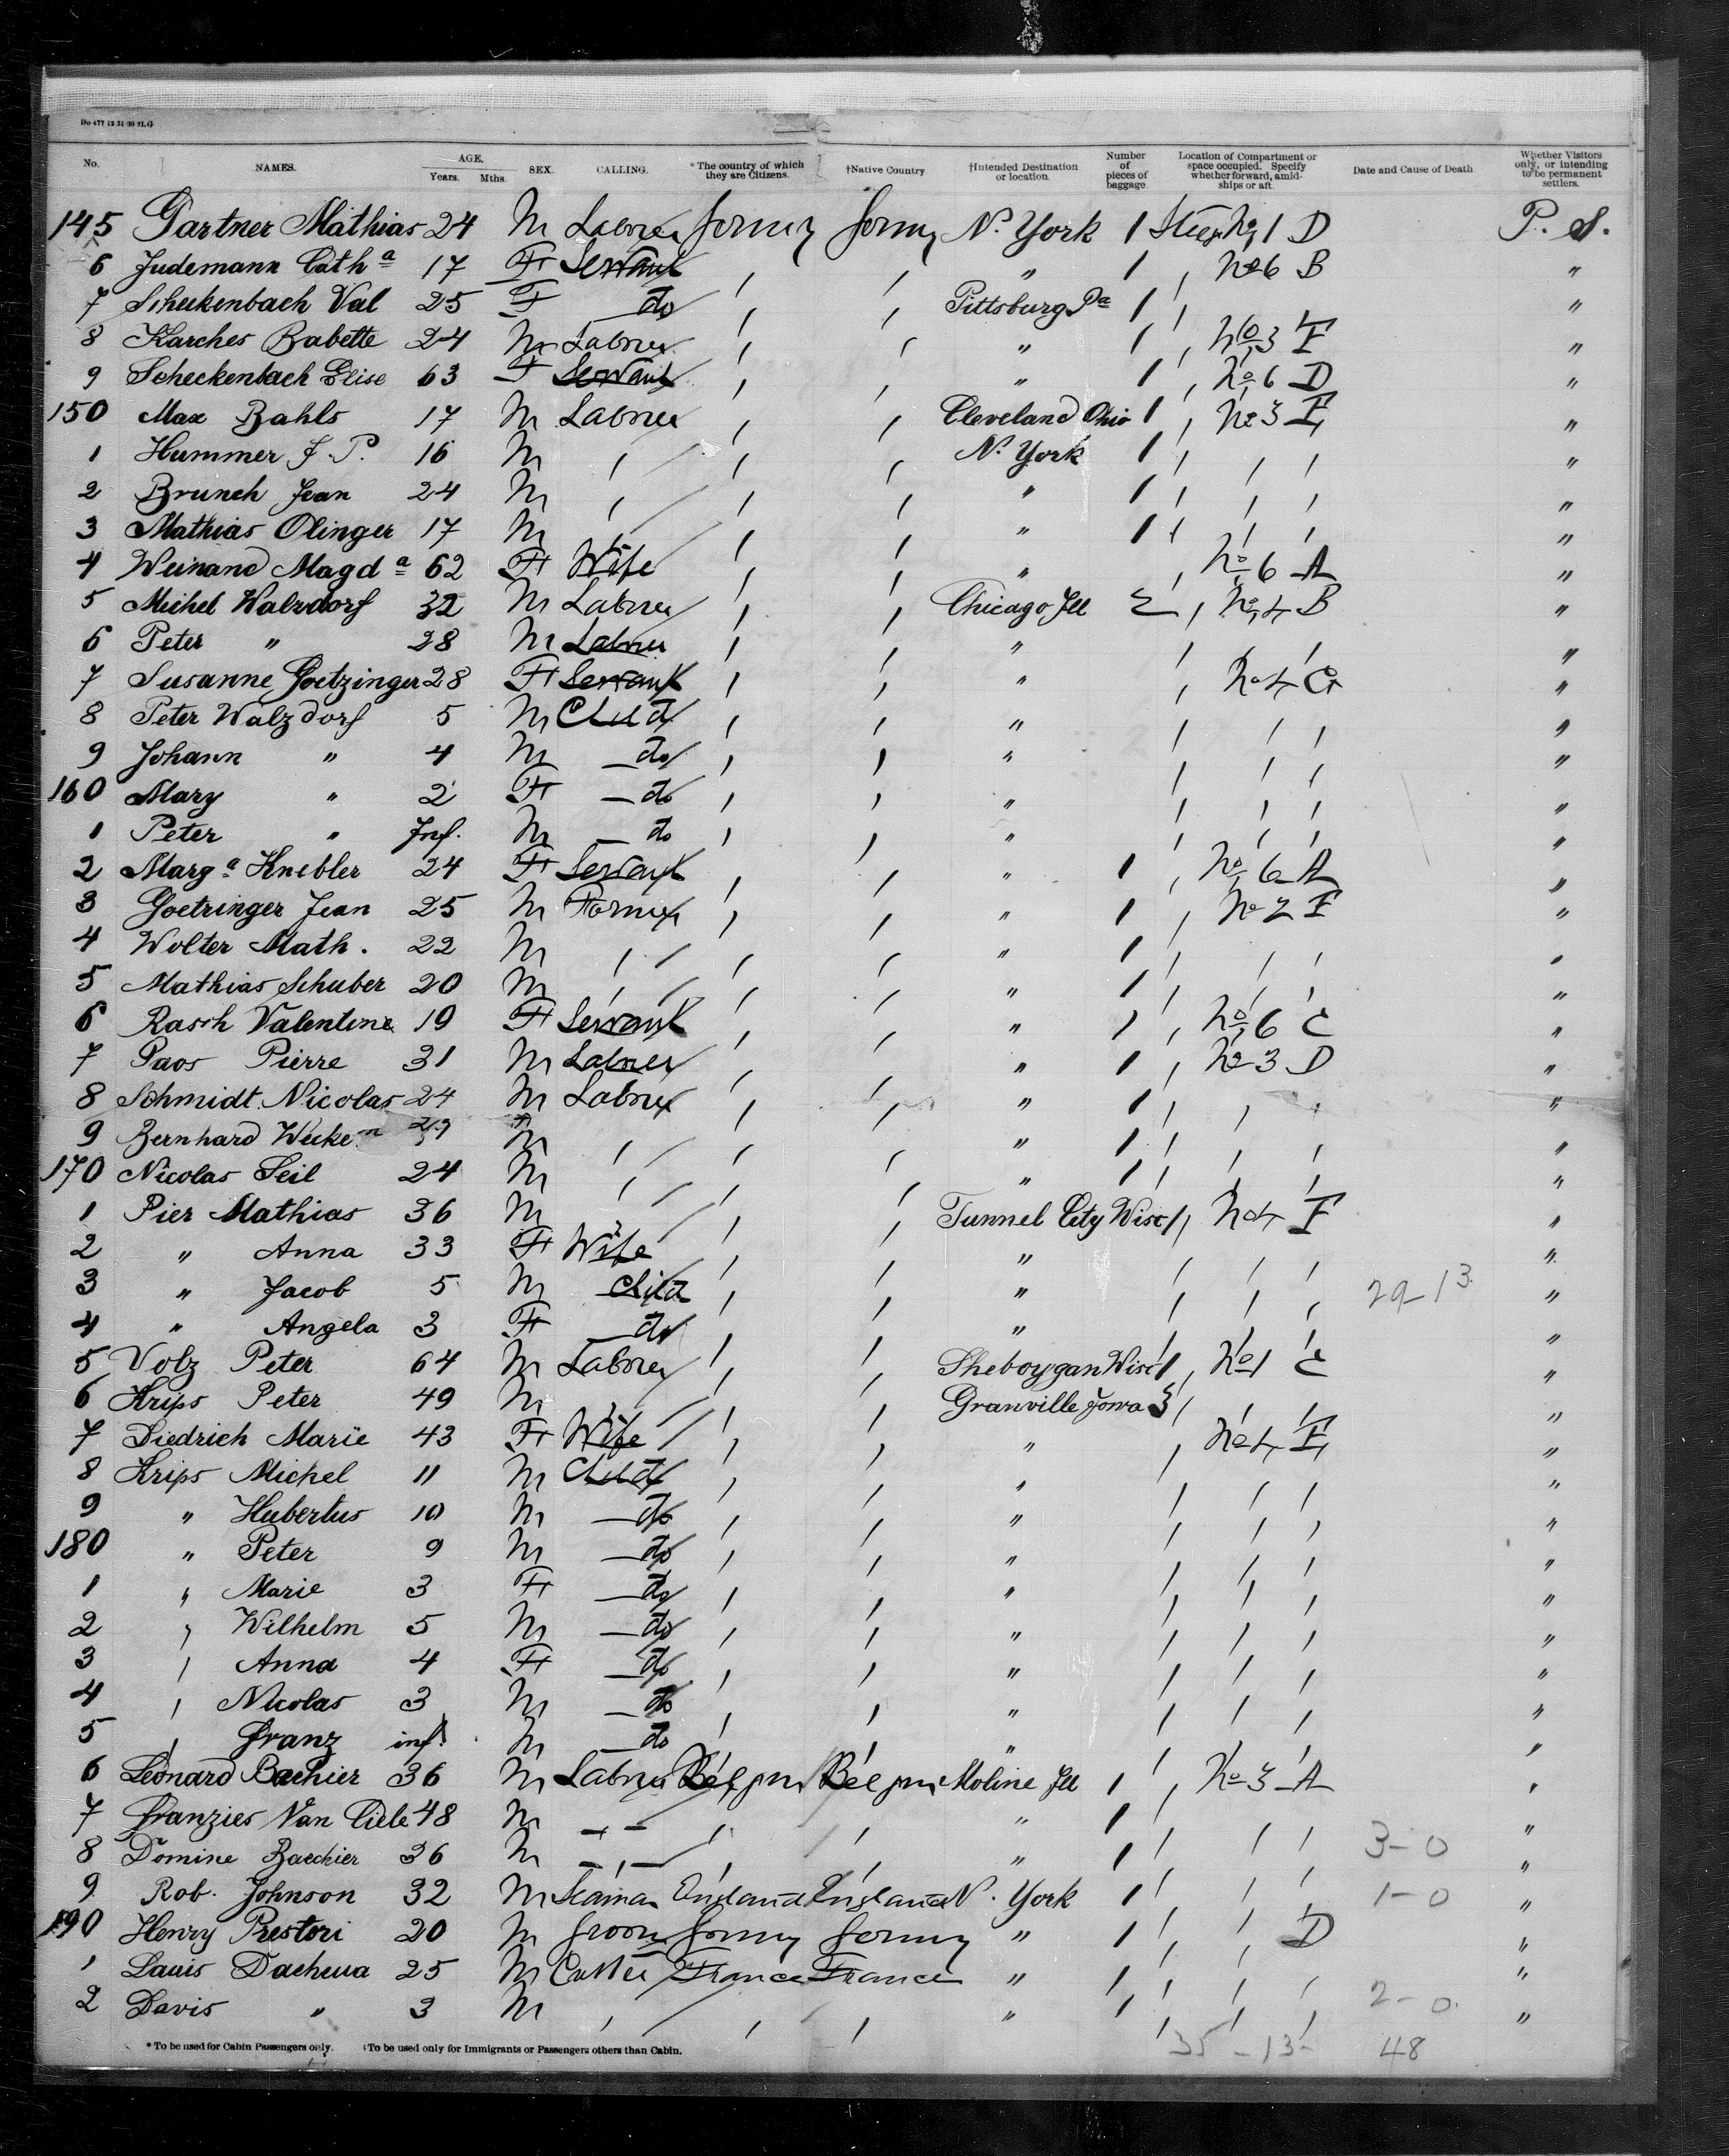 Do 477 12 31 90 TLG
No. NAMES. AGE. Years. Mths. SEX. CALLING. *The country of which they are Citizens. †Native Country †Intended Destination or location. Number of pieces of baggage. Location of Compartment or space occupied. Specify whether forward, amidships or aft. Date and Cause of Death. Whether Visitors only, or intending to be permanent settlers.
145 Gartner Mathias 24 M Labrer Germy Germy N. York 1 No 1 D P. S.
6 Judemann Cath a 17 F Servant , , " 1 , No 6 B "
7 Scheckenbach Val 25 F do , , Pittsburg Pa 1 , "
8 Karches Babette 24 M Labrer , , " 1 , No 3 F "
9 Scheckenbach Elise 63 F Servant , , " 1 , No 6 D "
150 Max Bahls 17 M Labrer , , Cleveland Ohio 1 , No 3 F "
1 Hummer J. P. 16 M , , , N. York 1 , , , "
2 Brunch Jean 24 M , , , " 1 , , , "
3 Mathias Olinger 17 M , , , " 1 , , , "
4 Weinand Magd a 62 F Wife , , " , No 6 A "
5 Michel Walzdorf 32 M Labrer , , Chicago Ill 2 , No 4 B "
6 Peter " 28 M Labrer , , " , , , "
7 Susanne Goetzinger 28 F Servant , , " , No 4 C "
8 Peter Walzdorf 5 M Child , , " , , , "
9 Johann " 4 M do , , " , , , "
160 Mary " 2 F do , , " , , , "
1 Peter " Inf. M do , , " , , , "
2 Marg a Knebler 24 F Servant , , " 1 , No 6 A "
3 Goetzinger Jean 25 M Farmer , , " 1 , No 2 F "
4 Wolter Math. 22 M , , , " 1 , , , "
5 Mathias Schuber 20 M , , , " 1 , , , "
6 Rasch Valentine 19 F Servant , , " 1 , No 6 C "
7 Paos Pierre 31 M Labrer , , " 1 , No 3 D "
8 Schmidt Nicolas 24 M Labrer , , " 1 , , , "
9 Bernhard M , , , " 1 , , , "
170 Nicolas Seil 24 M , , , " 1 , , , "
1 Pier Mathias 36 M , , , Tunnel City Wisc 1 , No 4 F "
2 " Anna 33 F Wife , , " , , , "
3 " Jacob 5 M Child , , " , , , 29-13 "
4 " Angela 3 F do , , " , , , "
5 Volz Peter 64 M Labrer , , Sheboygan Wisc 1 , No 1 C "
6 Krips Peter 49 M , , , Granville Iowa 3 , , , "
7 Diedrich Marie 43 F Wife , , " , No 4 F "
8 Krips Michel 11 M Child , , " , , , "
9 " Hubertus 10 M do , , " , , , "
180 " Peter 9 M do , , " , , , "
1 " Marie 3 F do , , " , , , "
2 , Wilhelm 5 M do , , " , , , "
3 , Anna 4 F do , , " , , , "
4 , Nicolas 3 M do , , " , , , "
5 , Franz inf. M do , , " , , , "
6 Leonard Bachier 36 M Labrer Belgm Belgm Moline Ill 1 , No 3 A "
7 Franzies Van 48 M , , , " 1 , , , "
8 Domine Baechier 36 M , , , " 1 , , , 3-0 "
9 Rob. Johnson 32 M Seaman England England N. York 1 , , , 1-0 "
190 Henry Prestori 20 M Groom Germy Germy " 1 , , D "
1 Lauis 25 M France France " 1 , , , "
2 Davis " 3 M , , , " 1 , , , 2-0. "
*To be used for Cabin Passengers only. †To be used only for Immigrants or Passengers others than Cabin. 35-13- 48